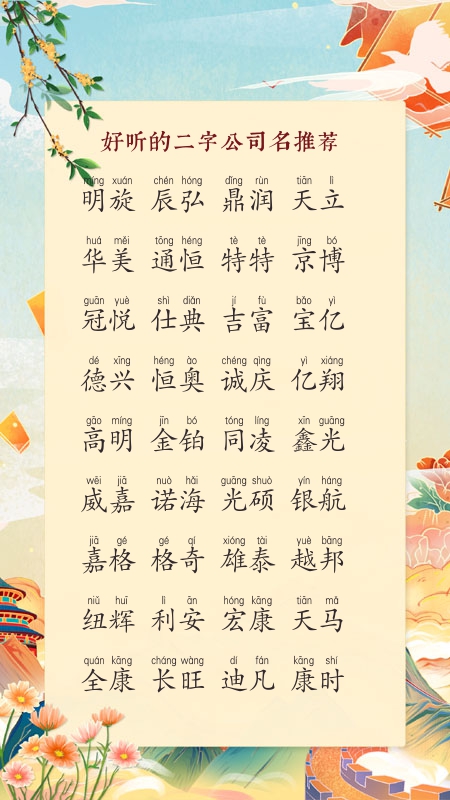 好听的二字公司名推荐
míng xuán chén hóng dǐng rùn tiān lì
明旋 辰弘 鼎润 天立
huá měi tōng héng tè tè jīng bó
华美 通恒 特特 京博
guān yuè shì diǎn jí fù bǎo yì
冠悦 仕典 吉富 宝亿
dé xīng héng ào chéng qìng yì xiáng
德兴 恒奥 诚庆 亿翔
gāo míng jīn bó tóng líng xīn guāng
高明 金铂 同凌 鑫光
wēi jiā nuò hǎi guāng shuò yín háng
威嘉 诺海 光硕 银航
jiā gé gé qí xióng tài yuè bāng
嘉格 格奇 雄泰 越邦
niǔ huī lì ān hóng kāng tiān mǎ
纽辉 利安 宏康 天马
quán kāng cháng wàng dí fán kāng shí
全康 长旺 迪凡 康时